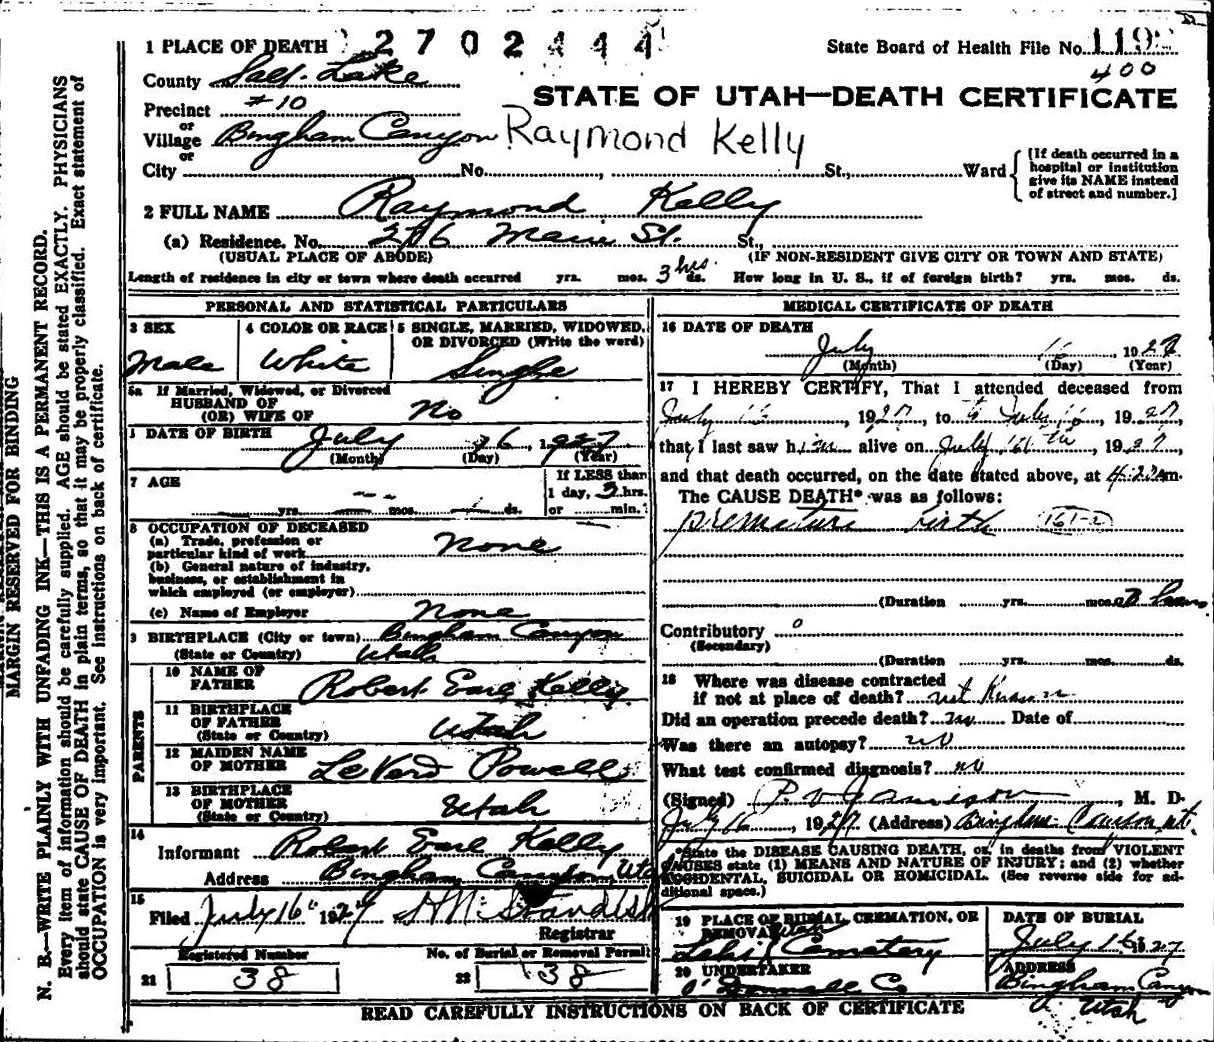 1 PLACE OF DEATH 2 7 0 2 4 4 4 State Board of Health File No. 119
County Salt Lake 400
Precinct #10 STATE OF UTAH—DEATH CERTIFICATE
or
Village Bingham Canyon Raymond Kelly
or
City No. , St., Ward
[If death occurred in a
hospital or institution
give its NAME instead
of street and number.]
2 FULL NAME Raymond Kelly
(a) Residence. No. Main St. St.,
(USUAL PLACE OF ABODE) (IF NON-RESIDENT GIVE CITY OR TOWN AND STATE)
Length of residence in city or town where death occurred yrs. mos. 3 hrs. ds. How long in U. S., if of foreign birth? yrs. mos. ds.
PERSONAL AND STATISTICAL PARTICULARS
3 SEX 4 COLOR OR RACE 5 SINGLE, MARRIED, WIDOWED,
OR DIVORCED (Write the word)
Male White Single
5a If Married, Widowed, or Divorced
HUSBAND OF
(OR) WIFE OF No
DATE OF BIRTH July 16 1927
(Month) (Day) (Year)
7 AGE If LESS than
1 day, 3 hrs.
yrs. mos. ds. or min.
8 OCCUPATION OF DECEASED
(a) Trade, profession or
particular kind of work None
(b) General nature of industry,
business, or establishment in
which employed (or employer)
(c) Name of Employer None
9 BIRTHPLACE (City or town) Bingham Canyon
(State or Country) Utah
PARENTS
10 NAME OF
FATHER Robert Earl Kelly
11 BIRTHPLACE
OF FATHER
(State or Country) Utah
12 MAIDEN NAME
OF MOTHER LeVerd Powell
13 BIRTHPLACE
OF MOTHER
(State or Country) Utah
14
Informant Robert Earl Kelly
Address Bingham Canyon, Utah
15
Filed July 16" 1927 H N Standish
Registrar
Registered Number No. of Burial or Removal Permit
21 38 22 38
MEDICAL CERTIFICATE OF DEATH
16 DATE OF DEATH
July 16 , 1927
(Month) (Day) (Year)
17 I HEREBY CERTIFY, That I attended deceased from
July 16 , 1927, to July 16 1927
that I last saw him alive on July 16th , 1927
and that death occurred, on the date stated above, at m.
The CAUSE DEATH* was as follows:
premature birth 161-2
(Duration yrs. mos.
Contributory 0
(Secondary)
(Duration yrs. mos. ds.
18 Where was disease contracted
if not at place of death? not Known
Did an operation precede death? no Date of
Was there an autopsy? no
What test confirmed diagnosis? no
(Signed) P. V. Jamison , M. D.
July 16 , 1927 (Address) Bingham Canyon Ut.
*State the DISEASE CAUSING DEATH, or, in deaths from VIOLENT
CAUSES state (1) MEANS AND NATURE OF INJURY: and (2) whether
ACCIDENTAL, SUICIDAL OR HOMICIDAL. (See reverse side for ad-
ditional space.)
19 PLACE OF BURIAL, CREMATION, OR
REMOVAL Utah
Lehi Cemetery
DATE OF BURIAL
July 16 1927
20 UNDERTAKER
O'Donnell Co
ADDRESS
Bingham Canyon
Utah
READ CAREFULLY INSTRUCTIONS ON BACK OF CERTIFICATE
MARGIN RESERVED FOR BINDING
N. B.—WRITE PLAINLY WITH UNFADING INK—THIS IS A PERMANENT RECORD.
Every item of information should be carefully supplied. AGE should be stated EXACTLY. PHYSICIANS
should state CAUSE OF DEATH in plain terms, so that it may be properly classified. Exact statement of
OCCUPATION is very important. See instructions on back of certificate.